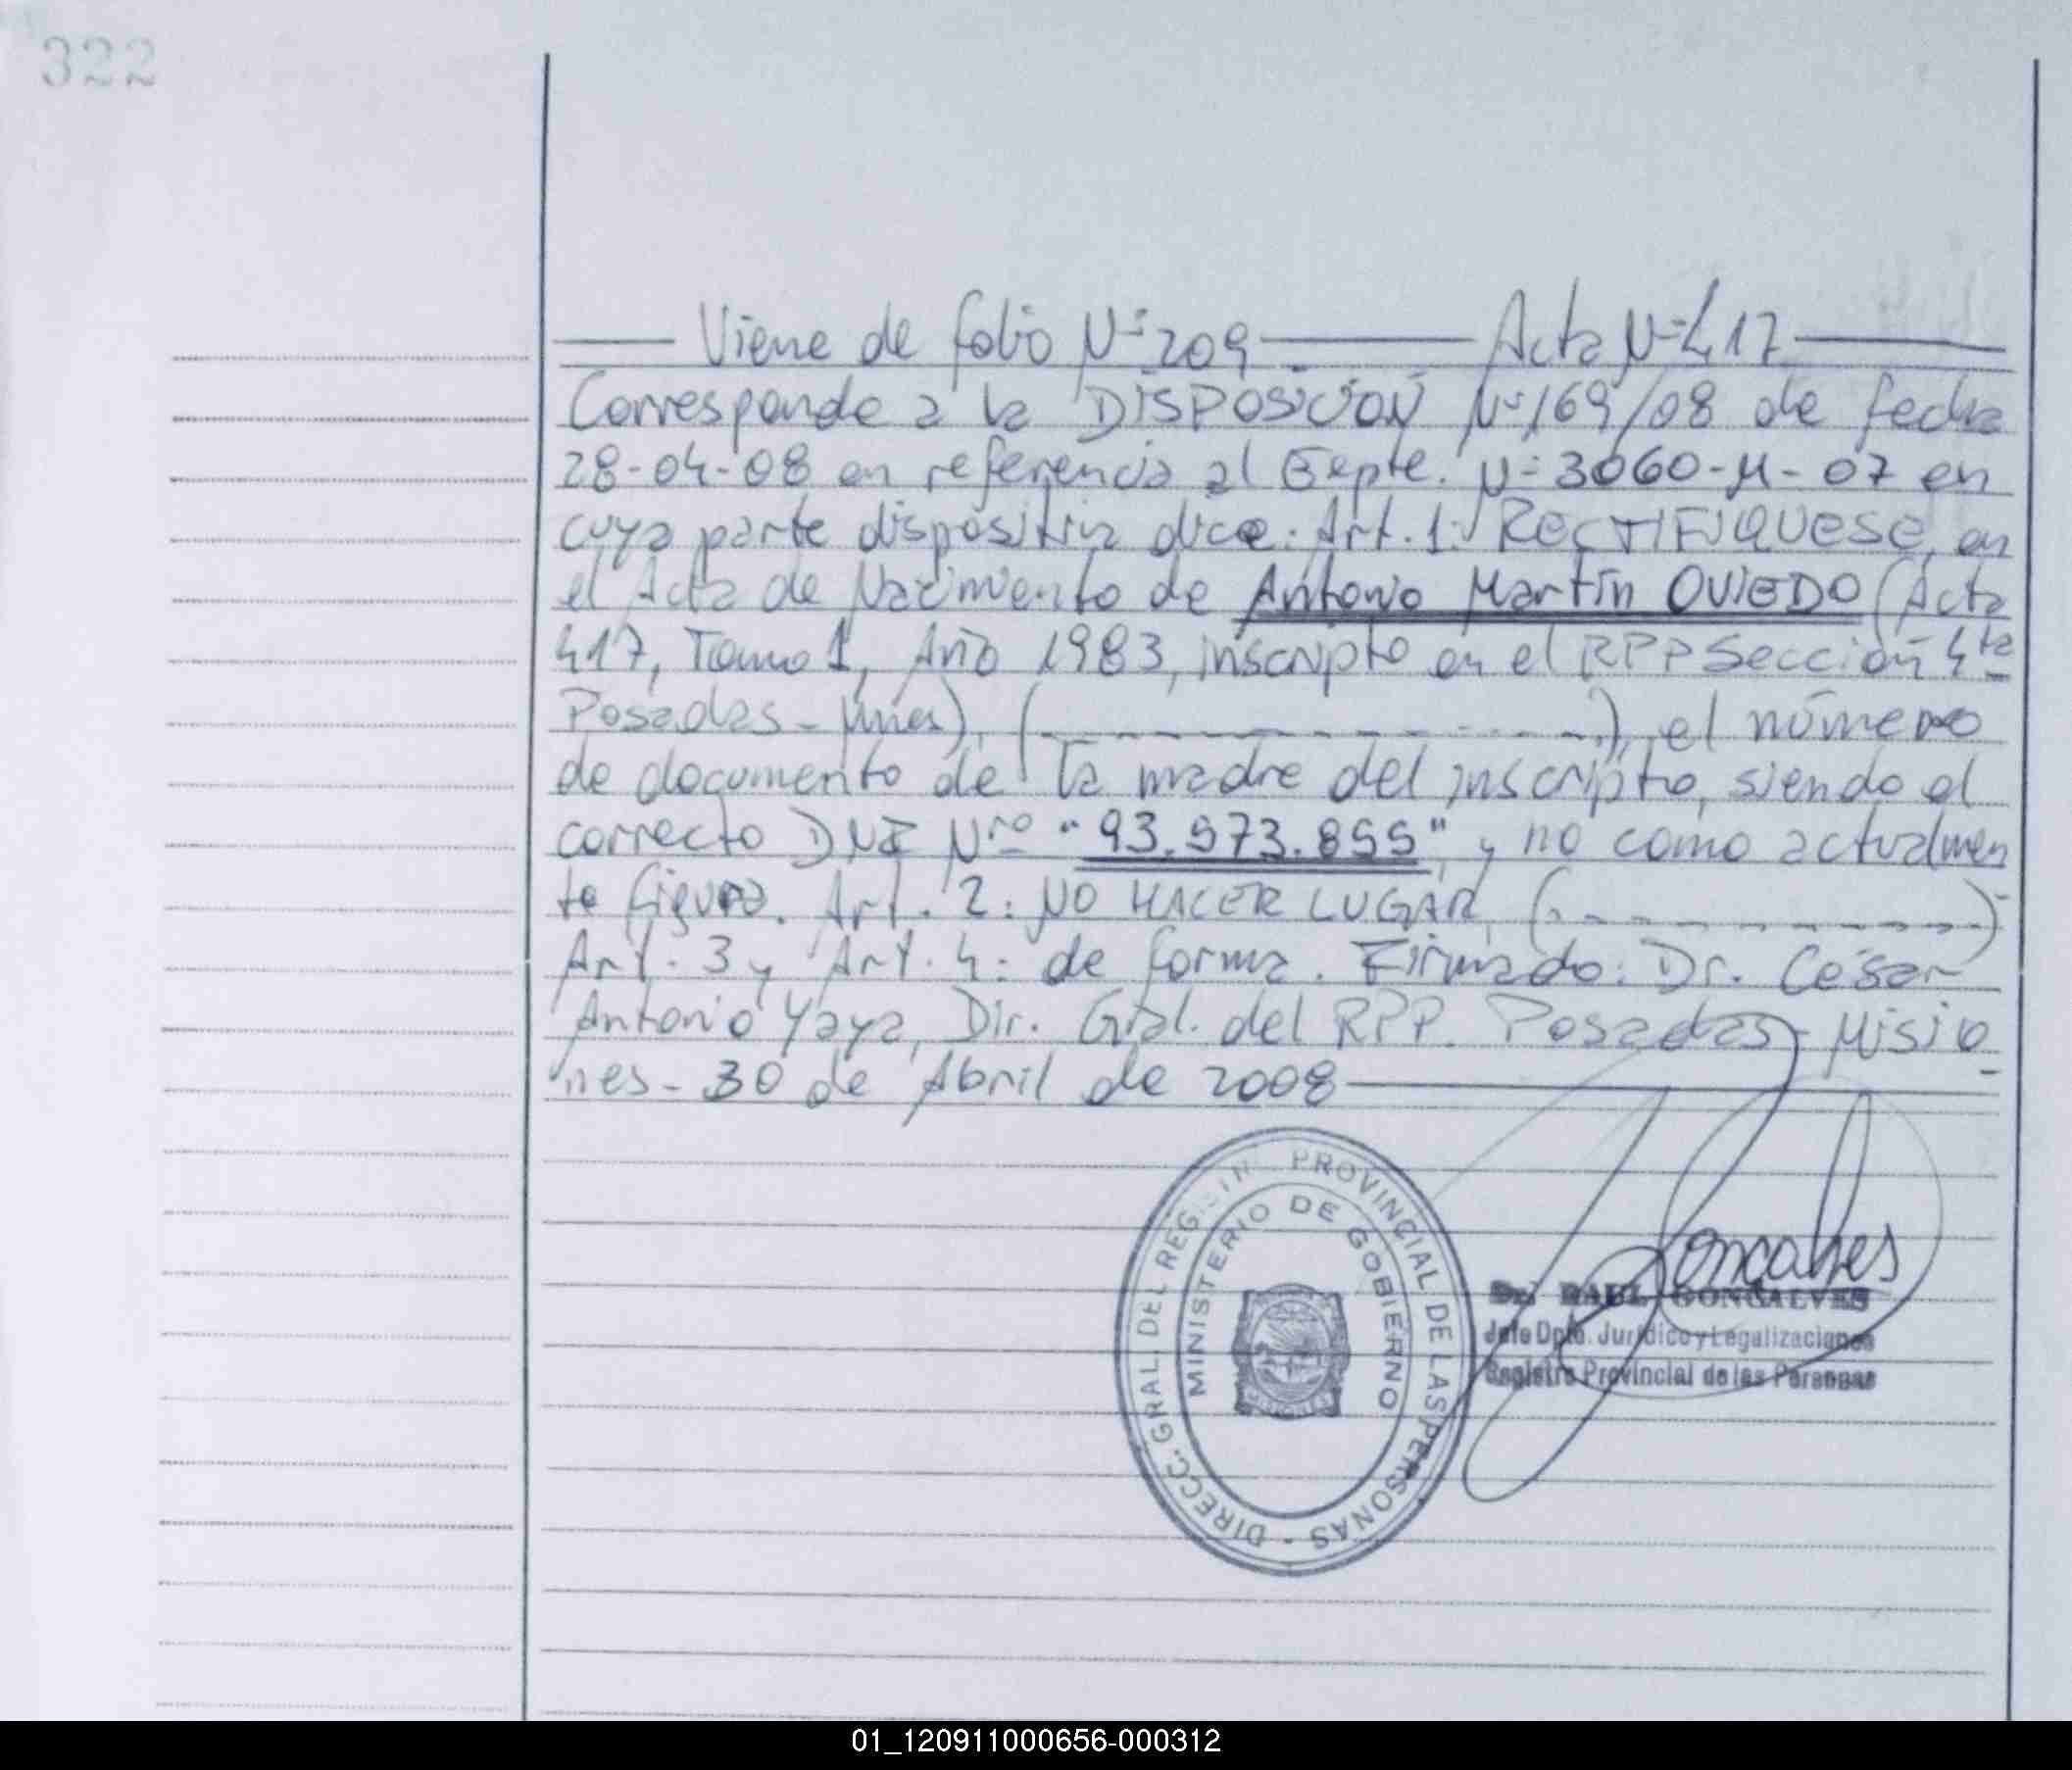 322
Viene de folio Nº 209 Acta Nº 417
Corresponde a la DISPOSICION Nº 169/08 de fecha
28-04-08 en referencia al Expte. Nº 3060-M-07 en
cuya parte dispositiva dice: Art. 1: RECTIFIQUESE, en
el Acta de Nacimiento de Antonio Martín OVIEDO (Acta
417, Tomo 1, Año 1983, inscripto en el RPP Sección 4ta
Posadas - Mnes), (- - - - - - - - - - - -), el número
de documento de la madre del inscripto, siendo el
correcto DNI Nro "93.573.855", y no como actualmen
te figura. Art. 2: NO HACER LUGAR, (- - - - - - - -)
Art. 3 y Art. 4: de forma. Firmado: Dr. César
Antonio Yaya, Dir. Gral. del RPP. Posadas - Misio
nes - 30 de Abril de 2008
DIRECC. GRAL. DEL REGISTR PROVINCIAL DE LAS PERSONAS -
MINISTERIO DE GOBIERNO
Goncalves
Dr. RAUL GONCALVES
Jefe Dpto. Jurídico y Legalizaciones
Registro Provincial de las Personas
01_120911000656-000312